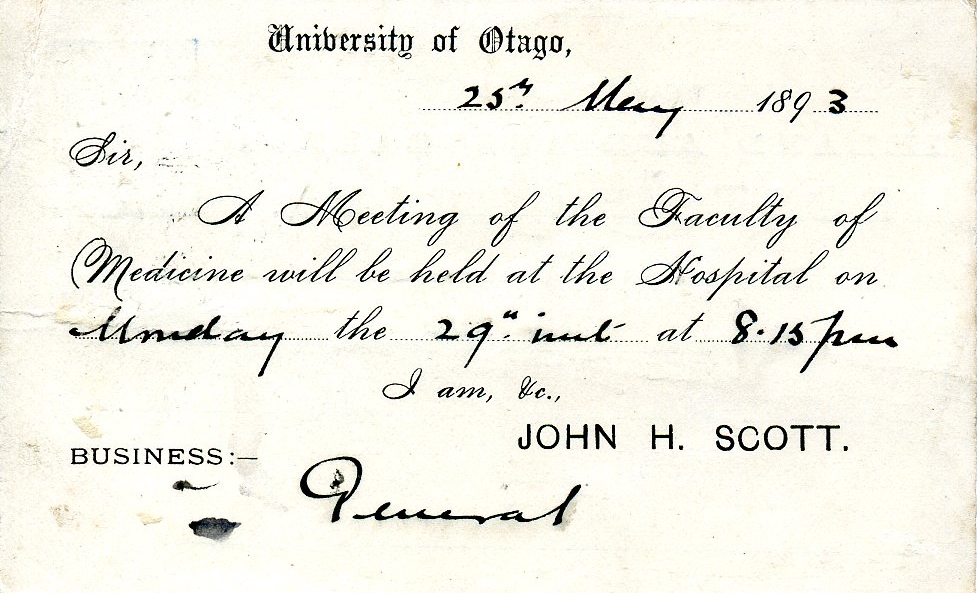 University of Otago,
25th May 1893
Sir,
A Meeting of the Faculty of
Medicine will be held at the Hospital on
Monday the 29th inst at 8.15 pm
I am, &c.,
JOHN H. SCOTT.
BUSINESS:—
General